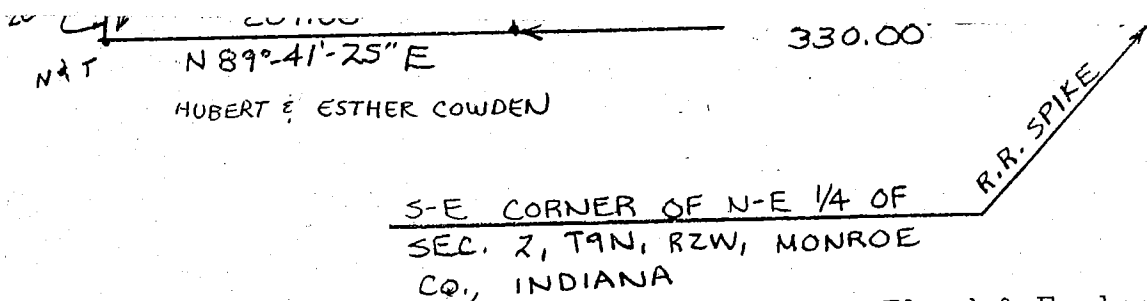 330.00
N 89°-41'-25" E
N & T
HUBERT & ESTHER COWDEN
R.R. SPIKE
S-E CORNER OF N-E 1/4 OF
SEC. 2, T9N, R2W, MONROE
CO., INDIANA